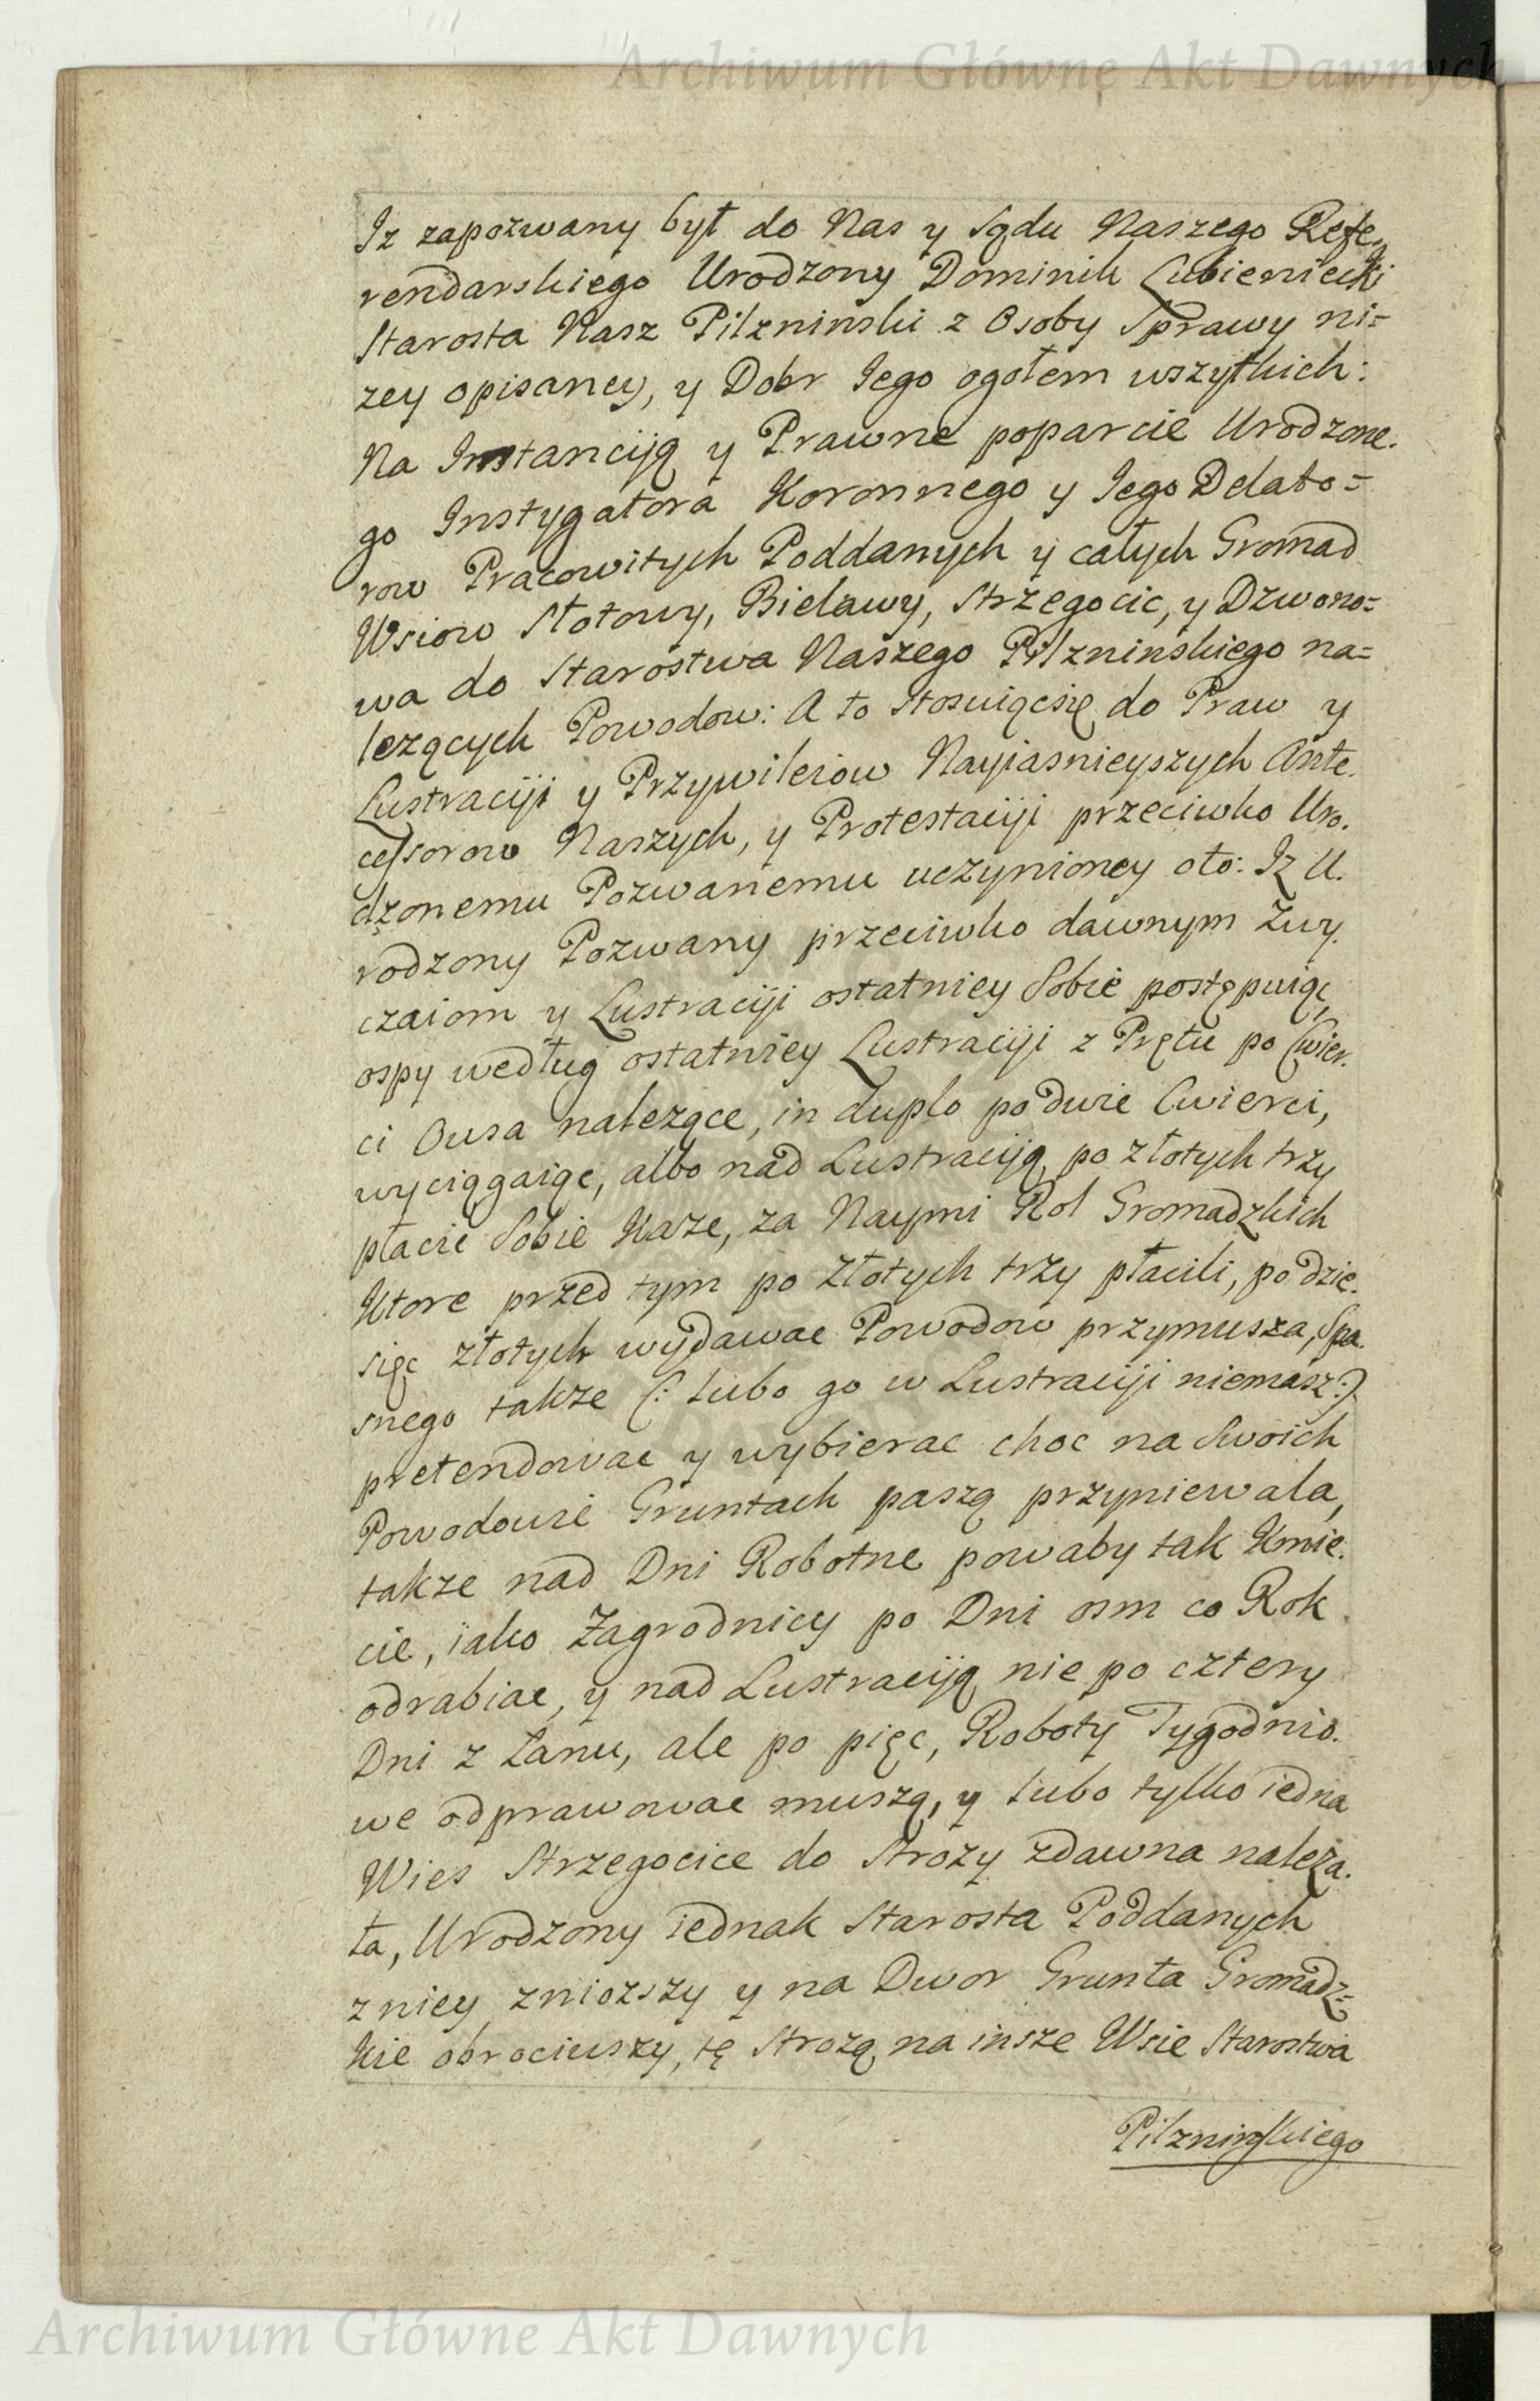 Archiwum Główne Akt Dawnych
Iz zapozwany był do Nas y Sądu Naszego Refe,,
rendarskiego Urodzony Dominik Lubieniecki
Starosta Nasz Pilzninski z Osoby Sprawy ni=
zey opisaney, y Dobr Iego ogołem wszytkich:
Na Instancyią y Prawne poparcie Urodzone.
go Instygatora Koronnego y Iego Delato=
row Pracowitych Poddanych y całych Gromad
Wsiow Słotowy, Bielawy, Strzegocic, y Dzwono=
wa do Starostwa Naszego Pilzninskiego na=
lezących Powodow: A to Stosuiącsię do Praw y
Lustracyi y Przywileiow Nayiasnieyszych Ante.
cessorow Naszych, y Protestacyi przeciwko Uro.
dzonemu Pozwanemu uczynioney oto: Iz U.
rodzony Pozwany przeciwko dawnym Zwy.
czaiom y Lustracyi ostatniey Sobie postępuiąc,
ospy według ostatniey Lustracyi z Prętu po Cwier.
ci Owsa nalezące, in duplo po dwie Cwierci,
wyciągaiąc, albo nad Lustracyią po złotych trzy
płacic Sobie Kaze, za Naymi Rol Gromadzkich
Ktore przed tym po Złotych trzy płacili, po dzie.
sięc złotych wydawac Powodow przymusza, Spa.
snego takze (: lubo go w Lustracyi niemasz :)
pretendowac y wybierac choc na Swoich
Powodowie Gruntach paszą przyniewala,
takze nad Dni Robotne powaby tak Kmie.
cie, iako Zagrodnicy po Dni osm co Rok
odrabiac, y nad Lustracyią nie po cztery
Dni z Łanu, ale po pięc, Roboty Tygodnio.
we odprawowac muszą, y lubo tylko iedna
Wies Strzegocice do Strozy zdawna naleza.
ła, Urodzony iednak Starosta Poddanych
z niey zniozszy y na Dwor Grunta Gromadz=
kie obrociwszy, tę Strozą na insze Wsie Starostwa
Pilzninskiego
Archiwum Główne Akt Dawnych